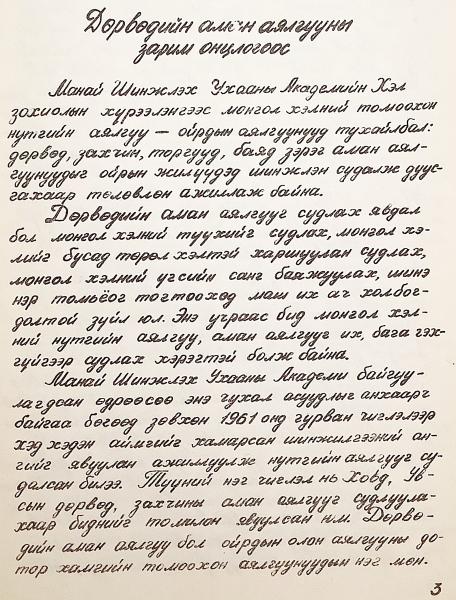 Дөрвөдийн аман аялгууны
зарим онцлогоос
Манай Шинжлэх Ухааны Академийн Хэл
зохиолын хүрээлэнгээс монгол хэлний томоохон
нутгийн аялгуу — ойрдын аялгуунууд тухайлбал:
дөрвөд, захчин, торгууд, баяд зэрэг аман аял-
гуунуудыг ойрын жилүүдэд шинжлэн судалж дуус-
гахаар төлөвлөн ажиллаж байна.
Дөрвөдийн аман аялгууг судлах явдал
бол монгол хэлний түүхийг судлах, монгол хэ-
лийг бусад төрөл хэлтэй харшуулан судлах,
монгол хэлний үгсийн санг баяжуулах, шинэ
нэр томьёог тогтооход маш их ач холбог-
долтой зүйл юл. Энэ учраас бид монгол хэл-
ний нутгийн аялгуу, аман аялгууг их, бага гэх-
гүйгээр судлах хэрэгтэй болж байна.
Манай Шинжлэх Ухааны Академи байгуу-
лагдсан өдрөөсөө энэ чухал асуудлыг анхаарч
байгаа бөгөөд зөвхөн 1961 онд гурван чиглэлээр
хэд хэдэн аймгийг хамарсан шинжилгээний ан-
гийг явуулан ажиллуулж нутгийн аялгууг су-
далсан билээ. Түүний нэг чиглэл нь Ховд, Ув-
сын дөрвөд, захчины аман аялгууг судлуула-
хаар бидний томилон явуулсан юм. Дөрвө-
дийн аман аялгуу бол ойрдын олон аялгууны до-
тор хамгийн томоохон аялгуунуудын нэг мөн.
3